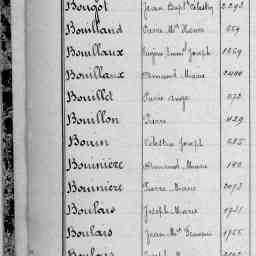 Bougot Jean Bapt. Célestin 2293
Bouillaud Pierre Mie Henri 554
Bouillaux Eugène Joseph 1569
Bouillaux Armand Marie 2400
Bouillet Pierre Ange 572
Bouillon Pierre 1129
Bouin Célestin Joseph 585
Bouinière Armand Marie
Bouinière Pierre Marie 2073
Boulais Joseph Marie 1731
Boulais Jean Mie François 1755
Boulais Joseph